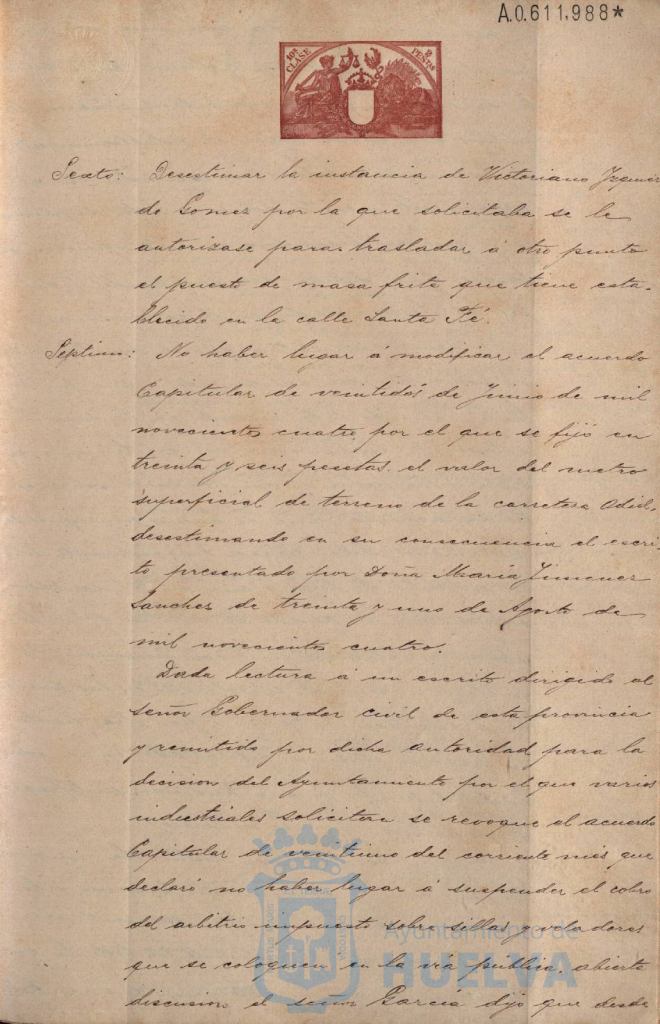 A.0.611,988*
10ª CLASE
2 PESETAS
Sexto: Desestimar la instancia de Victoriano
de Gomez por la que solicitaba se le
autorizase para trasladar á otro punto
el puesto de masa frita que tiene esta-
blecido en la calle Santa Fé.
Septimo: No haber lugar á modificar el acuerdo
Capitular de veintidós de Junio de mil
novecientos cuatro por el que se fijó en
treinta y seis pesetas el valor del metro
superficial de terreno de la carretera Odiel,
desestimando en su consecuencia el escri-
to presentado por Doña María Jimenez
Sanchez de treinta y uno de Agosto de
mil novecientos cuatro.
Dada lectura á un escrito dirigido al
Señor Gobernador civil de esta provincia
y remitido por dicha autoridad para la
decision del Ayuntamiento por el que varios
industriales solicitan se revoque el acuerdo
Capitular de veintiuno del corriente mes que
declaró no haber lugar á suspender el cobro
del arbitrio impuesto sobre sillas y veladores
que se coloquen en la via publica: abierta
discusion el señor García dijo que desde
Ayuntamiento de
HUELVA